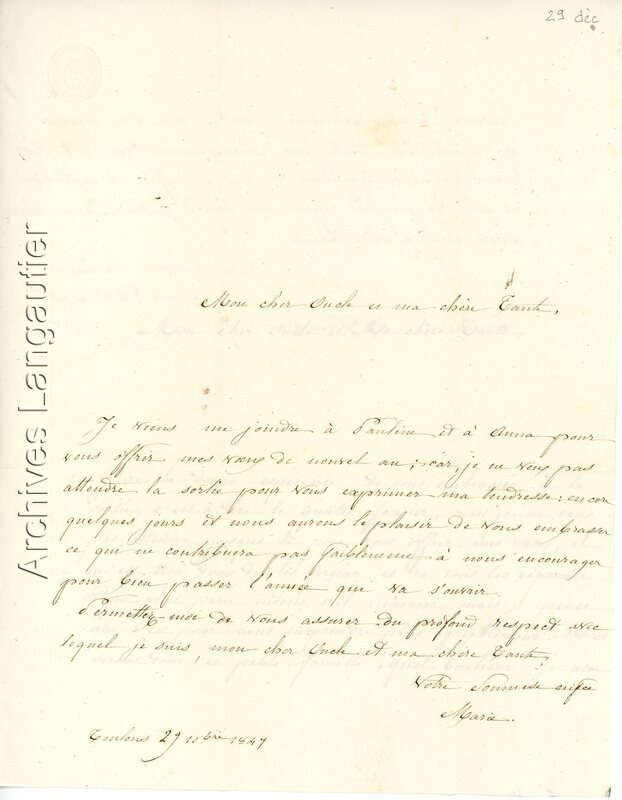 29 déc
Archives Langautier
Mon cher Oncle et ma chère Tante,
Je viens me joindre à Pauline et à Anna pour
vous offrir mes vœux de nouvel an; car, je ne veux pas
attendre la sortie pour vous exprimer ma tendresse; encore
quelques jours et nous aurons le plaisir de vous embrasser
ce qui ne contribuera pas faiblement à nous encourager
pour bien passer l'année qui va s'ouvrir.
Permettez-moi de vous assurer du profond respect avec
lequel je suis mon cher Oncle et ma chère Tante,
Votre soumise nièce
Marie.
29 10bre 1847